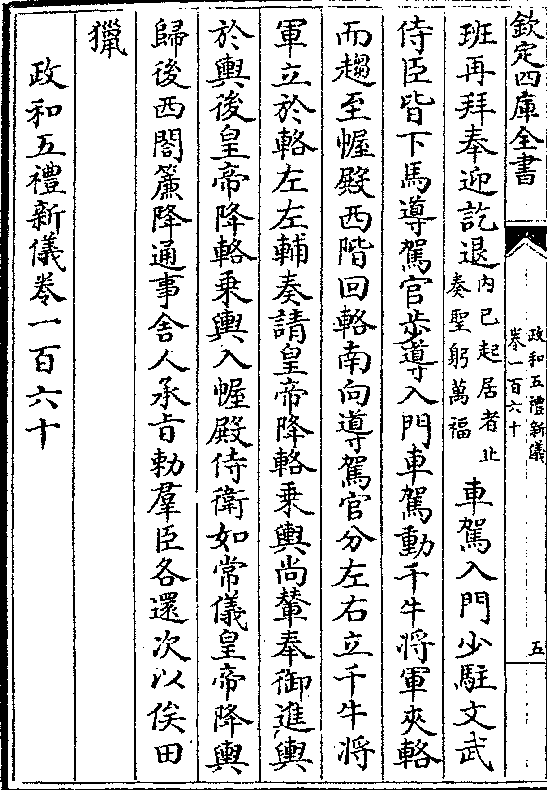 欽定四庫全書
政和五禮新儀
卷一百六十
五
班再拜奉迎訖退内已起居者止
奏聖躬萬福車駕入門少駐文武
侍臣皆下馬導駕官步導入門車駕動千牛將軍夾輅
而趨至幄殿西階回輅南向導駕官分左右立千牛將
軍立於輅左左輔奏請皇帝降輅乗輿尚輦奉御進輿
於輿後皇帝降輅乗輿入幄殿侍衛如常儀皇帝降輿
歸後西閤簾降通事舍人承旨勅羣臣各還次以俟田
獵
政和五禮新儀卷一百六十